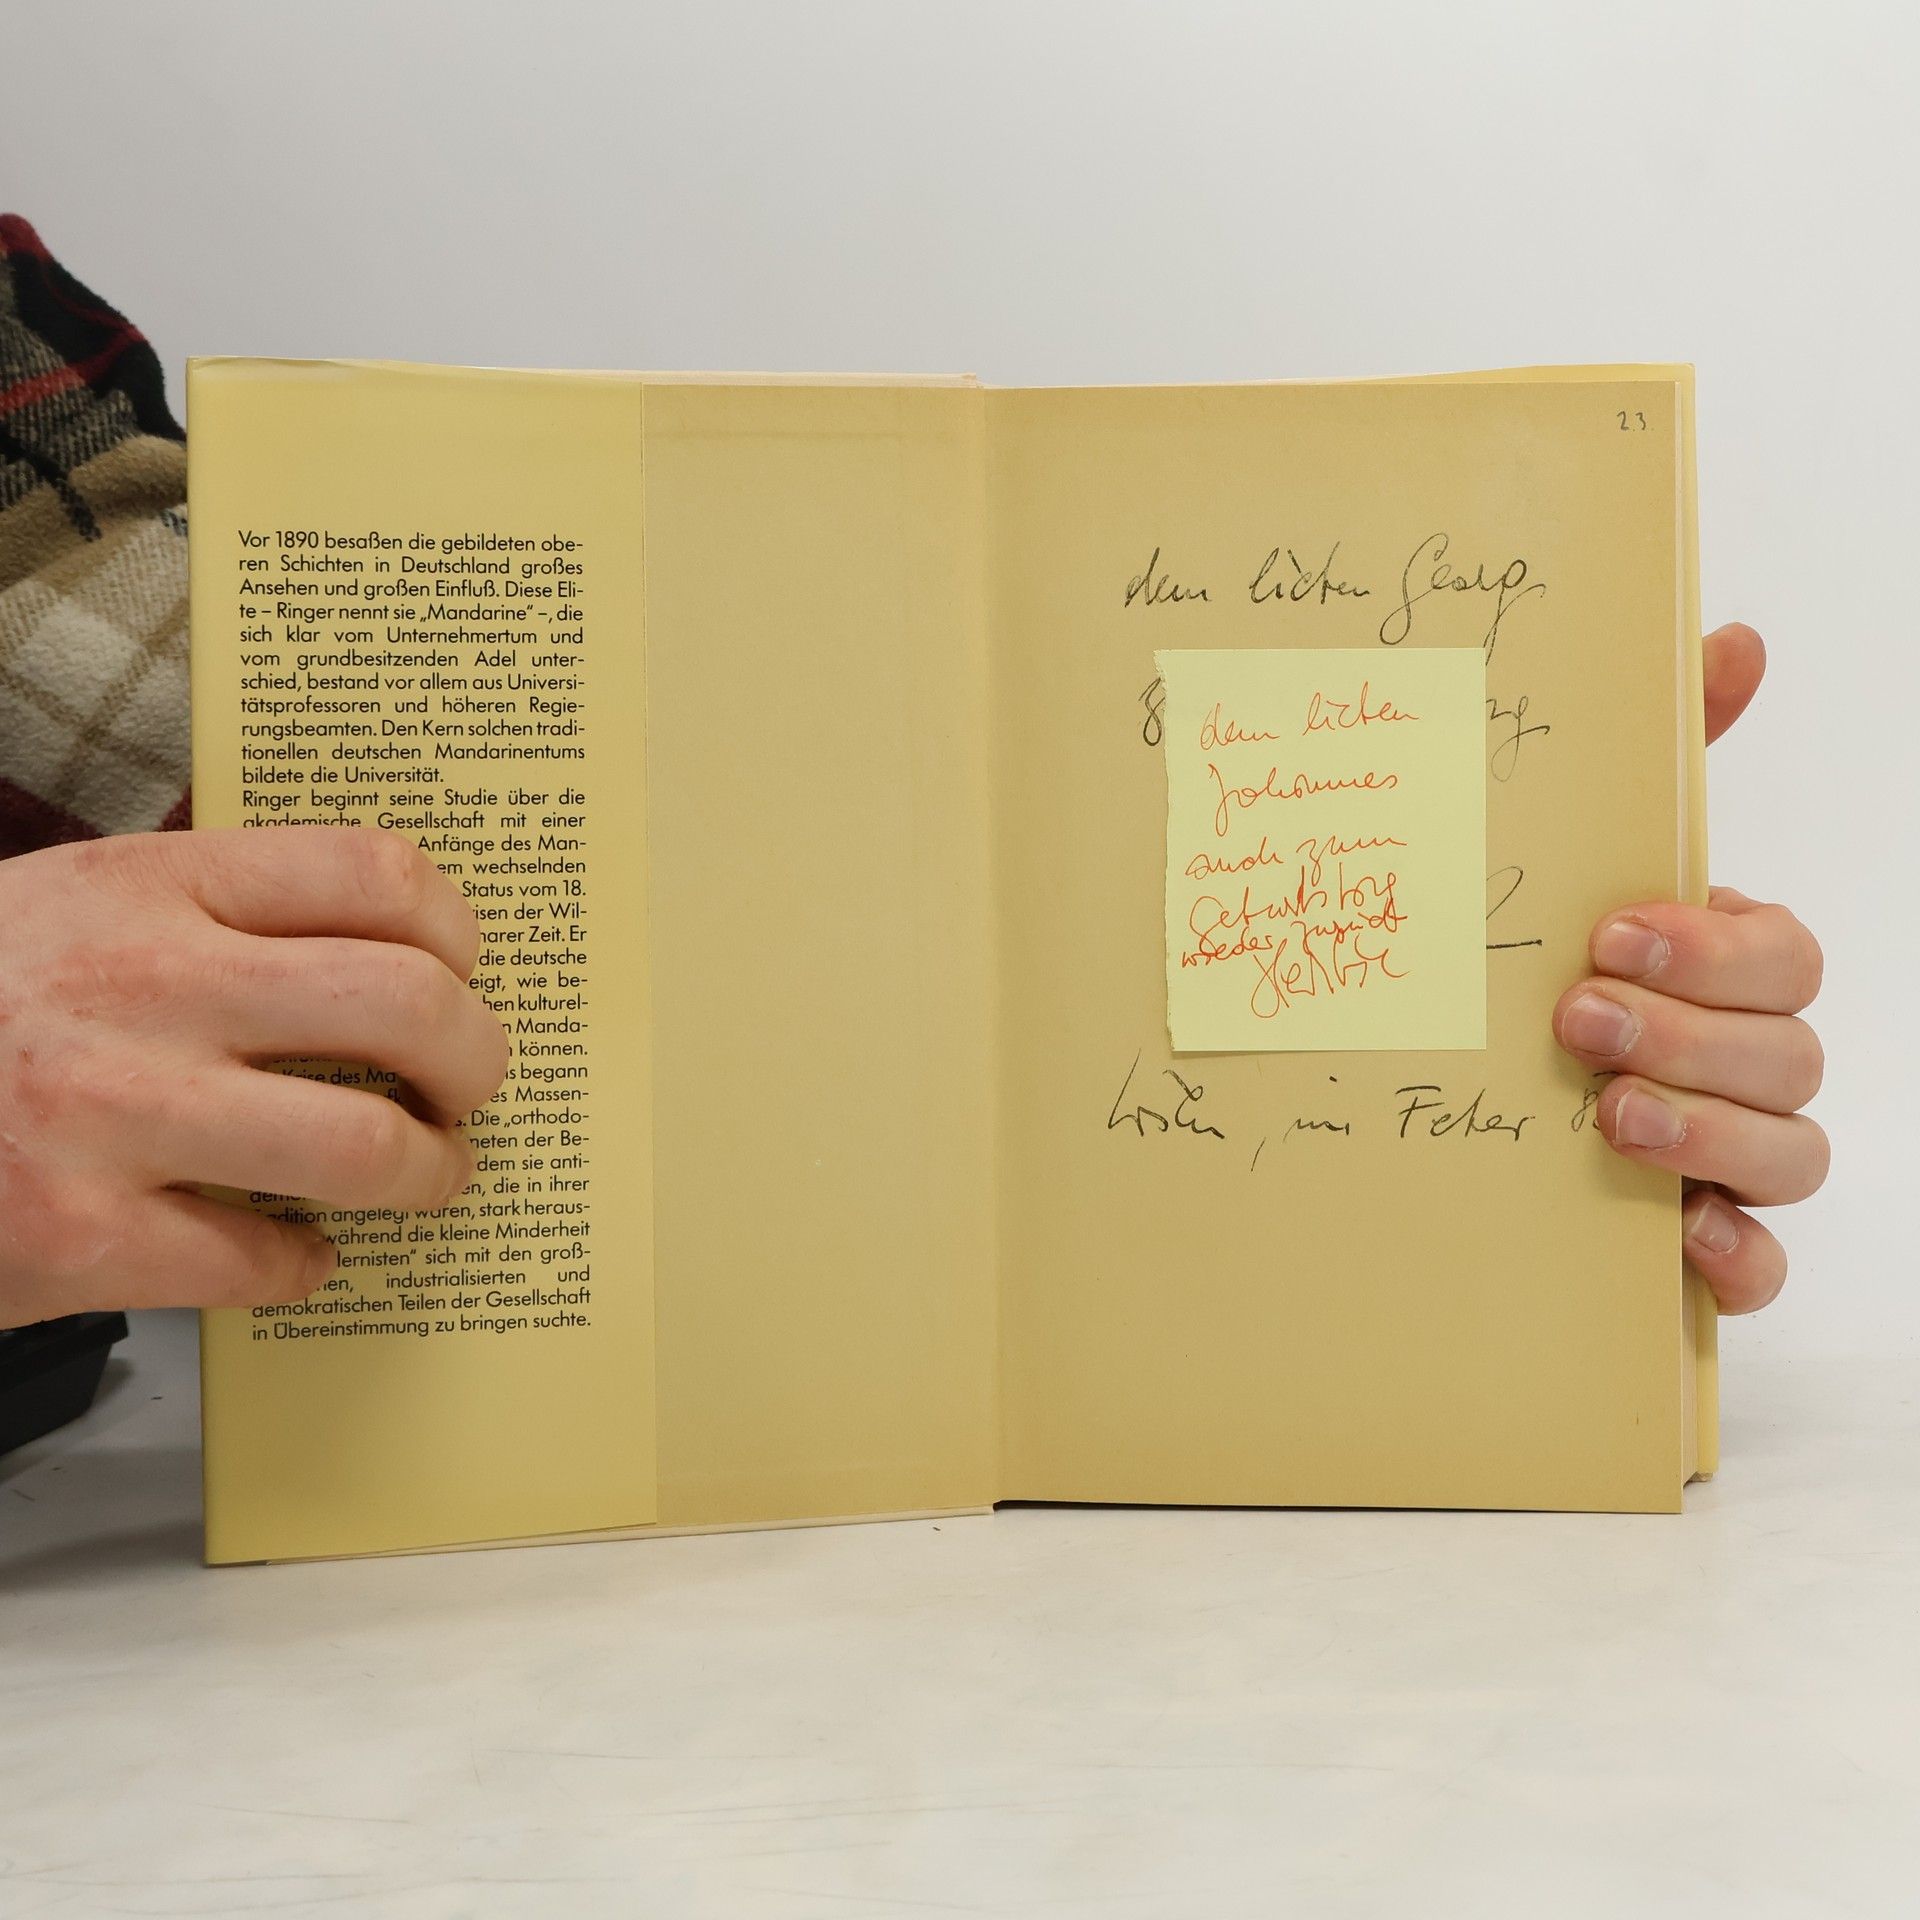 Vor 1890 besaßen die gebildeten obe-
ren Schichten in Deutschland großes
Ansehen und großen Einfluß. Diese Eli-
te – Ringer nennt sie „Mandarine“ –, die
sich klar vom Unternehmertum und
vom grundbesitzenden Adel unter-
schied, bestand vor allem aus Universi-
tätsprofessoren und höheren Regie-
rungsbeamten. Den Kern solchen tradi-
tionellen deutschen Mandarinentums
bildete die Universität.
Ringer beginnt seine Studie über die
akademische Gesellschaft mit einer
Anfänge des Man-
wechselnden
Status vom 18.
der Wil-
Zeit. Er
die deutsche
wie be-
kulturel-
Manda-
können.
Krise des Ma
begann
Massen-
Die „orthodo-
der Be-
dem sie anti-
die in ihrer
angelegt waren, stark heraus-
während die kleine Minderheit
sich mit den groß-
industrialisierten und
demokratischen Teilen der Gesellschaft
in Übereinstimmung zu bringen suchte.
23.
dem lieben Georg
dem lieben
Johannes
auch zum
Geburtstag
wieder zurück
im Feber